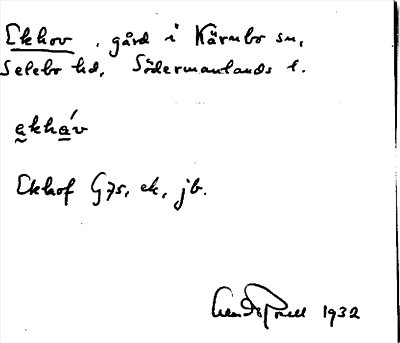 Ekhov, gård i Kärnbo sn,
Selebo hd, Södermanlands l.
ekháv
Ekhof G7s, ek, jb.
1932